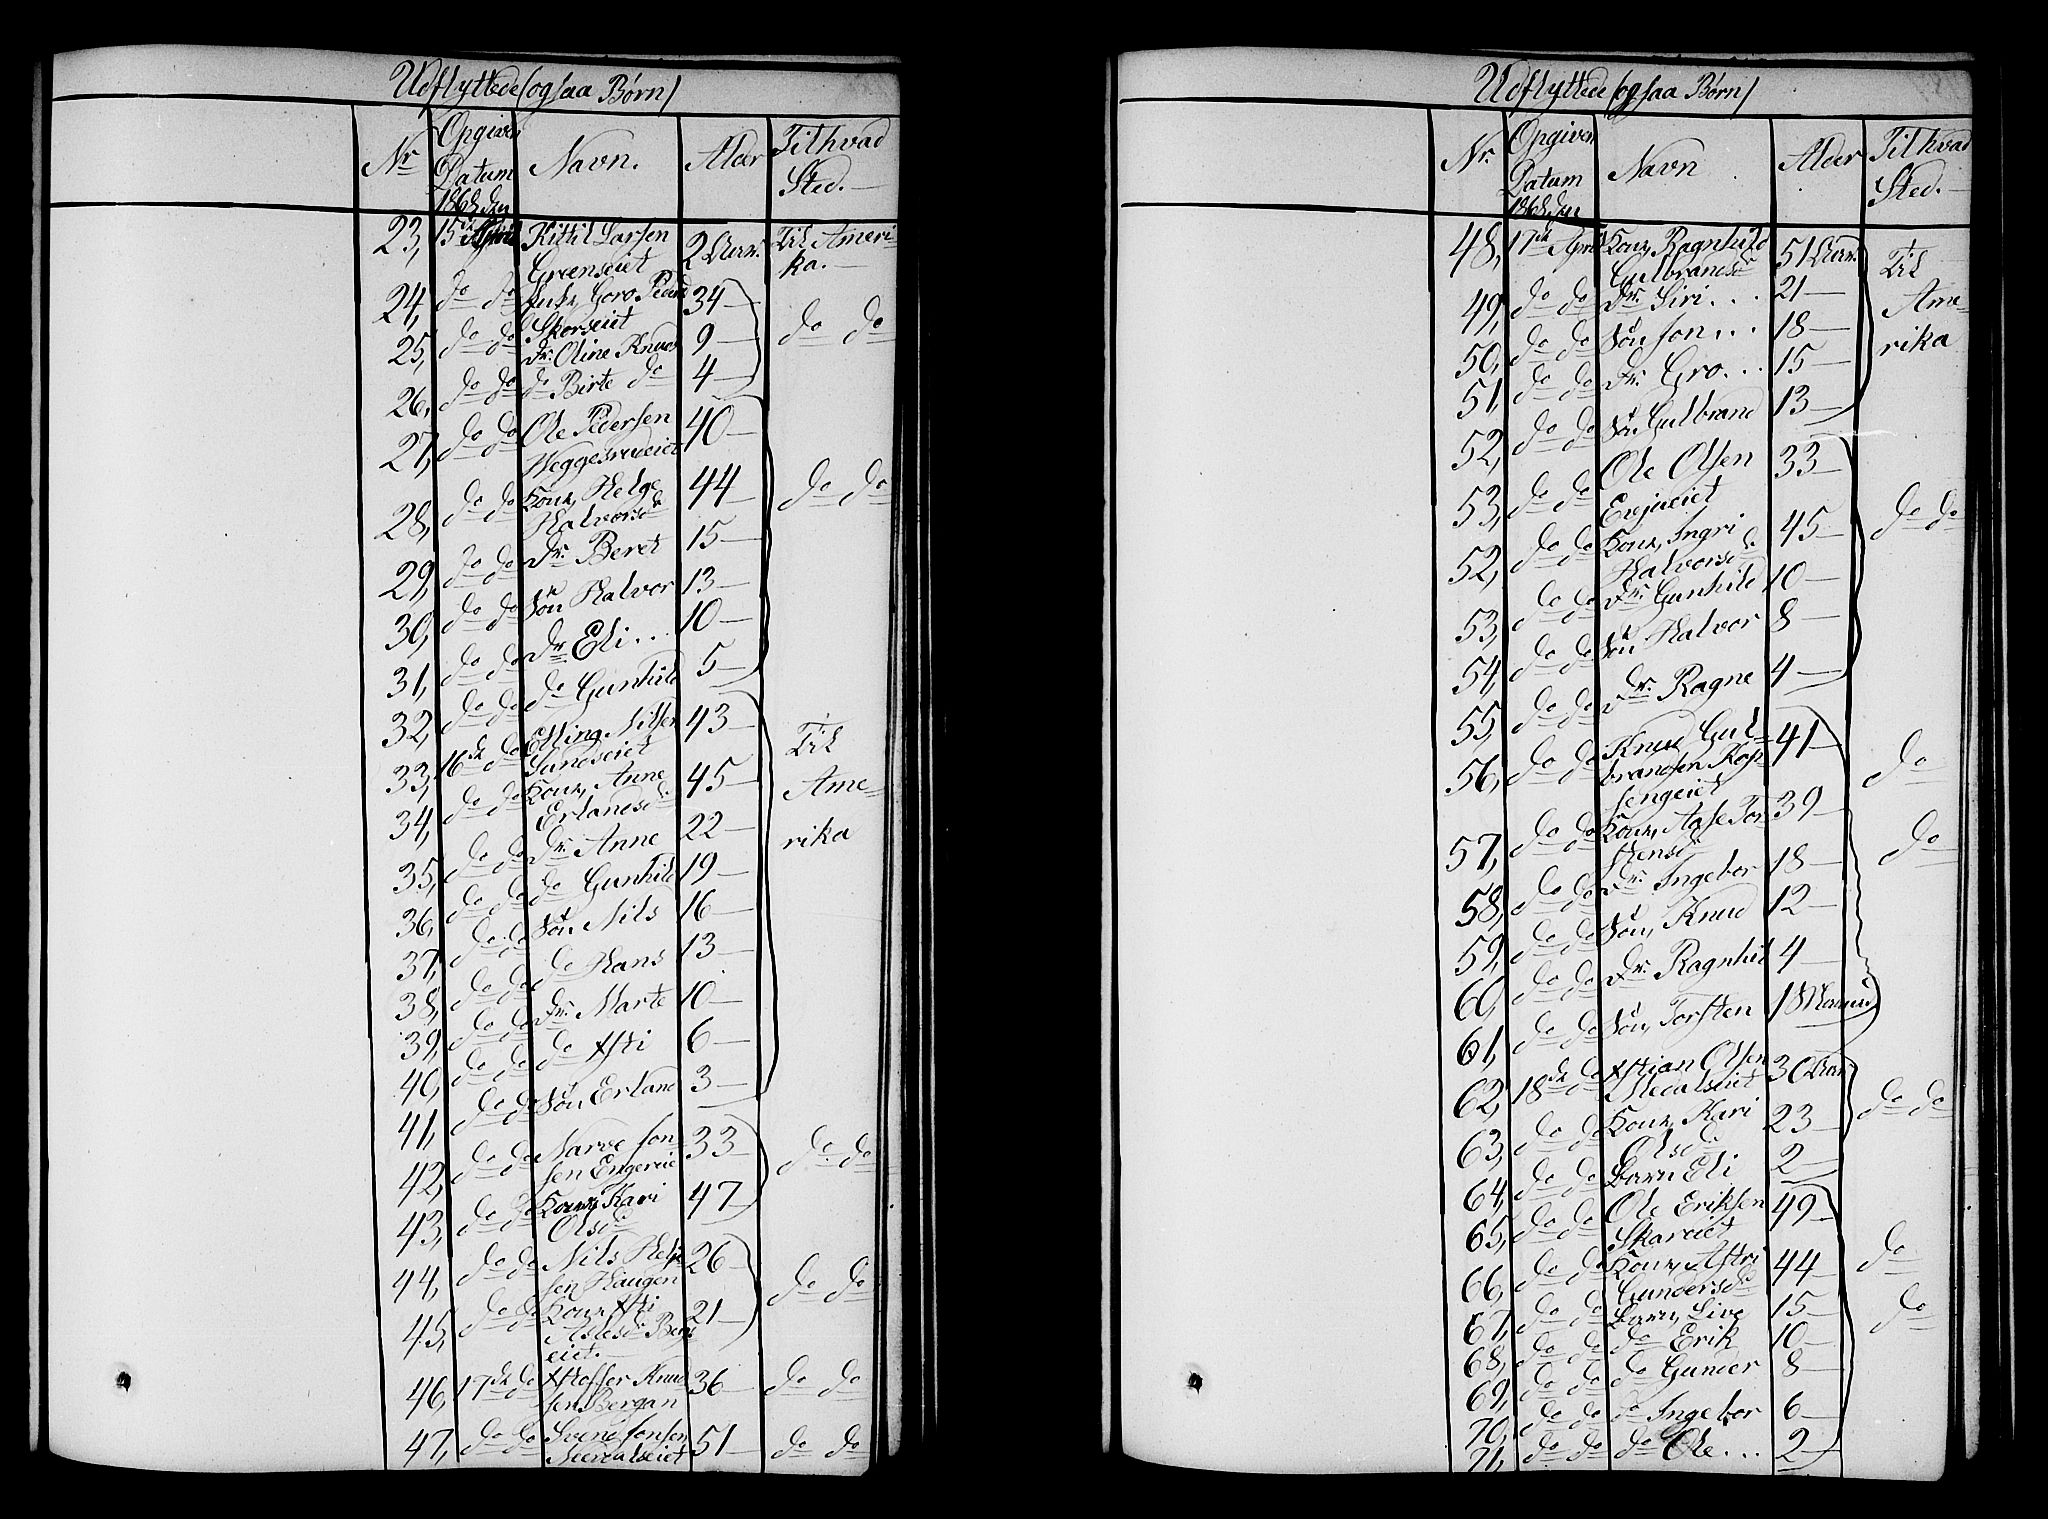 Udflyttede (ogsaa Børn)
Nr. Opgiven Datum 1868 den Navn. Alder Til hvad Sted.
23, 15de April Kittil Larsen Grenseiet 2 Aar. Til Amerika.
24, do do Enke, Goro Peders Skorseiet 34 do do
25, do do Dr. Oline Knuds 9
26, do do do Birte do 4
27, do do Ole Pedersen 40
Weggesrudeiet
28, do do Konr, Helge Halvorsd 44 do do
29, do do Dr. Beret 15
30, do do Søn Halvor 13
31, do do Dr Eli... 10
32, do do do Gunhild 5
33, 16de do Elling Nilsen Sundseiet 43 Til
34, do do Konr, Anne Erlandsd 45 Ame-
35, do do Dr. Anne 22 rika
36, do do do Gunhild 19
37, do do Søn Nils 16
38, do do do Hans 13
39, do do Dr. Marte 10
40, do do do Xsti 6
41, do do Søn Erland 3
42, do do Narve Jonsen Engereie 33 do do
43, do do Konr, Kari Olsd 47
44, do do Nils Helgesen Haugen 26 do do
45, do do Konr Xsti Aslesd Bergeiet. 21
46, 17de do Xstoffer Knudsen Bergan 36 do do
47, do do Svend Jonsen 51 do do
Udflyttede (ogsaa Børn)
Nr. Opgiven Datum 1868 den Navn Alder Til hvad Sted.
48, 17de April Konr, Ragnhild Gulbrandsd 51 Aar. Til
49, do do Dr. Siri... 21 Ame-
50, do do Søn Jon... 18 rika
51, do do Dr. Gro... 15
52, do do Søn Gulbrand 13
53, do do Ole Olsen Evjueiet 33
52, do do Konr, Ingri Halvorsd 45 do do
53, do do Dr. Gunhild 10
54, do do Søn Halvor 8
55, do do Dr. Ragne 4
56, do do Knud Gulbrandsen Kopsengeiet 41 do
57, do do Konr, Aase Torstensd 39 do
58, do do Dr. Ingebor 18
59, do do Søn, Knud 12
60, do do Dr. Ragnhil 4
61, do do Søn, Torsten 18 Maaned
62, 18de do Xstian Olsen 30 Aar
63, do do Konr, Kari Olsd 23 do do
64, do do Barn Eli 2
65, do do Ole Eriksen Skareiet 49
66, do do Konr, Astri Gundersd 44 do
67, do do Barn, Live 15 do
68, do do do Erik 10
69, do do do Gunder 8
70, do do do Ingebor 6
71, do do do Ole... 2